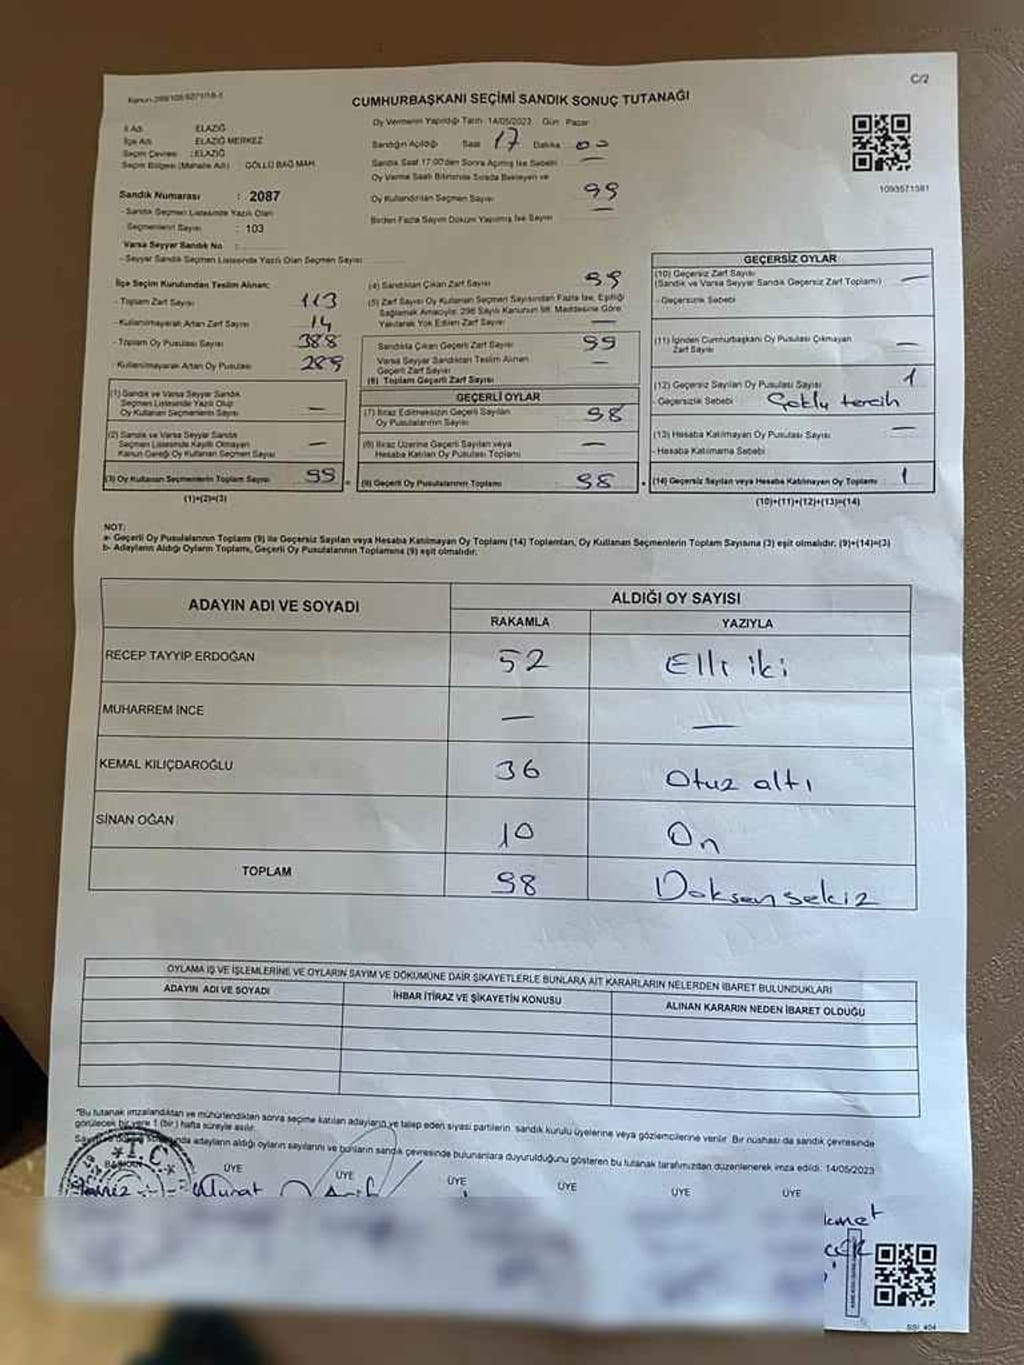 C/2
Kanun:298/105/6271/18-3
CUMHURBAŞKANI SEÇİMİ SANDIK SONUÇ TUTANAĞI
Oy Vermenin Yapıldığı Tarih: 14/05/2023 Gün: Pazar
İl Adı : ELAZIĞ
İlçe Adı : ELAZIĞ MERKEZ
Seçim Çevresi : ELAZIĞ
Seçim Bölgesi (Mahalle Adı) : GÖLLÜ BAĞ MAH.
Sandığın Açıldığı Saat 17 Dakika 00
Sandık Saat 17:00'den Sonra Açılmış İse Sebebi —
Oy Verme Saati Bitiminde Sırada Bekleyen ve
Oy Kullandırılan Seçmen Sayısı 99
Birden Fazla Sayım Döküm Yapılmış İse Sayısı —
1093571581
Sandık Numarası : 2087
- Sandık Seçmen Listesinde Yazılı Olan
Seçmenlerin Sayısı : 103
Varsa Seyyar Sandık No :
- Seyyar Sandık Seçmen Listesinde Yazılı Olan Seçmen Sayısı :
İlçe Seçim Kurulundan Teslim Alınan;
- Toplam Zarf Sayısı 113
- Kullanılmayarak Artan Zarf Sayısı 14
- Toplam Oy Pusulası Sayısı 388
- Kullanılmayarak Artan Oy Pusulası 289
(1) Sandık ve Varsa Seyyar Sandık
Seçmen Listesinde Yazılı Olup
Oy Kullanan Seçmenlerin Sayısı —
(2) Sandık ve Varsa Seyyar Sandık
Seçmen Listesinde Kayıtlı Olmayan
Kanun Gereği Oy Kullanan Seçmen Sayısı —
(3) Oy Kullanan Seçmenlerin Toplam Sayısı 99
(1)+(2)=(3)
(4) Sandıktan Çıkan Zarf Sayısı 99
(5) Zarf Sayısı Oy Kullanan Seçmen Sayısından Fazla İse, Eşitliği
Sağlamak Amacıyla; 298 Sayılı Kanunun 98. Maddesine Göre
Yakılarak Yok Edilen Zarf Sayısı —
Sandıkta Çıkan Geçerli Zarf Sayısı 99
Varsa Seyyar Sandıktan Teslim Alınan
Geçerli Zarf Sayısı —
(6) Toplam Geçerli Zarf Sayısı
GEÇERLİ OYLAR
(7) İtiraz Edilmeksizin Geçerli Sayılan
Oy Pusulalarının Sayısı 98
(8) İtiraz Üzerine Geçerli Sayılan veya
Hesaba Katılan Oy Pusulası Toplamı —
(9) Geçerli Oy Pusulalarının Toplamı 98
GEÇERSİZ OYLAR
(10) Geçersiz Zarf Sayısı
(Sandık ve Varsa Seyyar Sandık Geçersiz Zarf Toplamı) —
- Geçersizlik Sebebi
(11) İçinden Cumhurbaşkanı Oy Pusulası Çıkmayan
Zarf Sayısı —
(12) Geçersiz Sayılan Oy Pusulası Sayısı 1
- Geçersizlik Sebebi Çoklu tercih
(13) Hesaba Katılmayan Oy Pusulası Sayısı —
- Hesaba Katılmama Sebebi
(14) Geçersiz Sayılan veya Hesaba Katılmayan Oy Toplamı 1
(10)+(11)+(12)+(13)=(14)
NOT:
a- Geçerli Oy Pusulalarının Toplamı (9) ile Geçersiz Sayılan veya Hesaba Katılmayan Oy Toplamı (14) Toplamları, Oy Kullanan Seçmenlerin Toplam Sayısına (3) eşit olmalıdır. (9)+(14)=(3)
b- Adayların Aldığı Oyların Toplamı, Geçerli Oy Pusulalarının Toplamına (9) eşit olmalıdır.
ADAYIN ADI VE SOYADI
ALDIĞI OY SAYISI
RAKAMLA YAZIYLA
RECEP TAYYİP ERDOĞAN 52 Elli iki
MUHARREM İNCE — —
KEMAL KILIÇDAROĞLU 36 Otuz altı
SİNAN OĞAN 10 On
TOPLAM 98 Doksan sekiz
OYLAMA İŞ VE İŞLEMLERİNE VE OYLARIN SAYIM VE DÖKÜMÜNE DAİR ŞİKAYETLERLE BUNLARA AİT KARARLARIN NELERDEN İBARET BULUNDUKLARI
ADAYIN ADI VE SOYADI İHBAR İTİRAZ VE ŞİKAYETİN KONUSU ALINAN KARARIN NEDEN İBARET OLDUĞU
"Bu tutanak imzalandıktan ve mühürlendikten sonra seçime katılan adayların ve talep eden siyasi partilerin, sandık kurulu üyelerine veya gözlemcilerine verilir. Bir nüshası da sandık çevresinde
görülecek bir yere 1 (bir) hafta süreyle asılır.
adayların aldığı oyların sayılarını ve bunların sandık çevresinde bulunanlara duyurulduğunu gösteren bu tutanak tarafımızdan düzenlenerek imza edildi. 14/05/2023
T.C.
BAŞKAN ÜYE ÜYE ÜYE ÜYE ÜYE ÜYE
Murat Arif